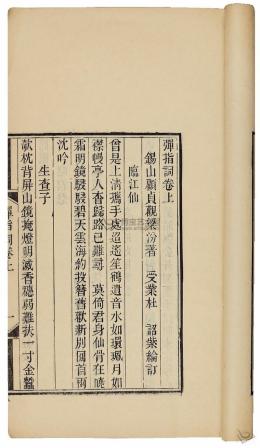 彈指詞卷上
錫山顧貞觀梁汾著 受業杜 詔紫綸訂
臨江仙
曾是上清攜手處迢迢笙鶴遺音水如環珮月如
襟幔亭人杳歸路已難尋 莫倚君身仙骨在曉
霜明鏡駸駸碧天雲海約投簪舊歡新別回首兩
沈吟
生查子
欹枕背屏山鏡掩燈明滅香穗弱難扶一寸金蠶
彈指詞卷上 一